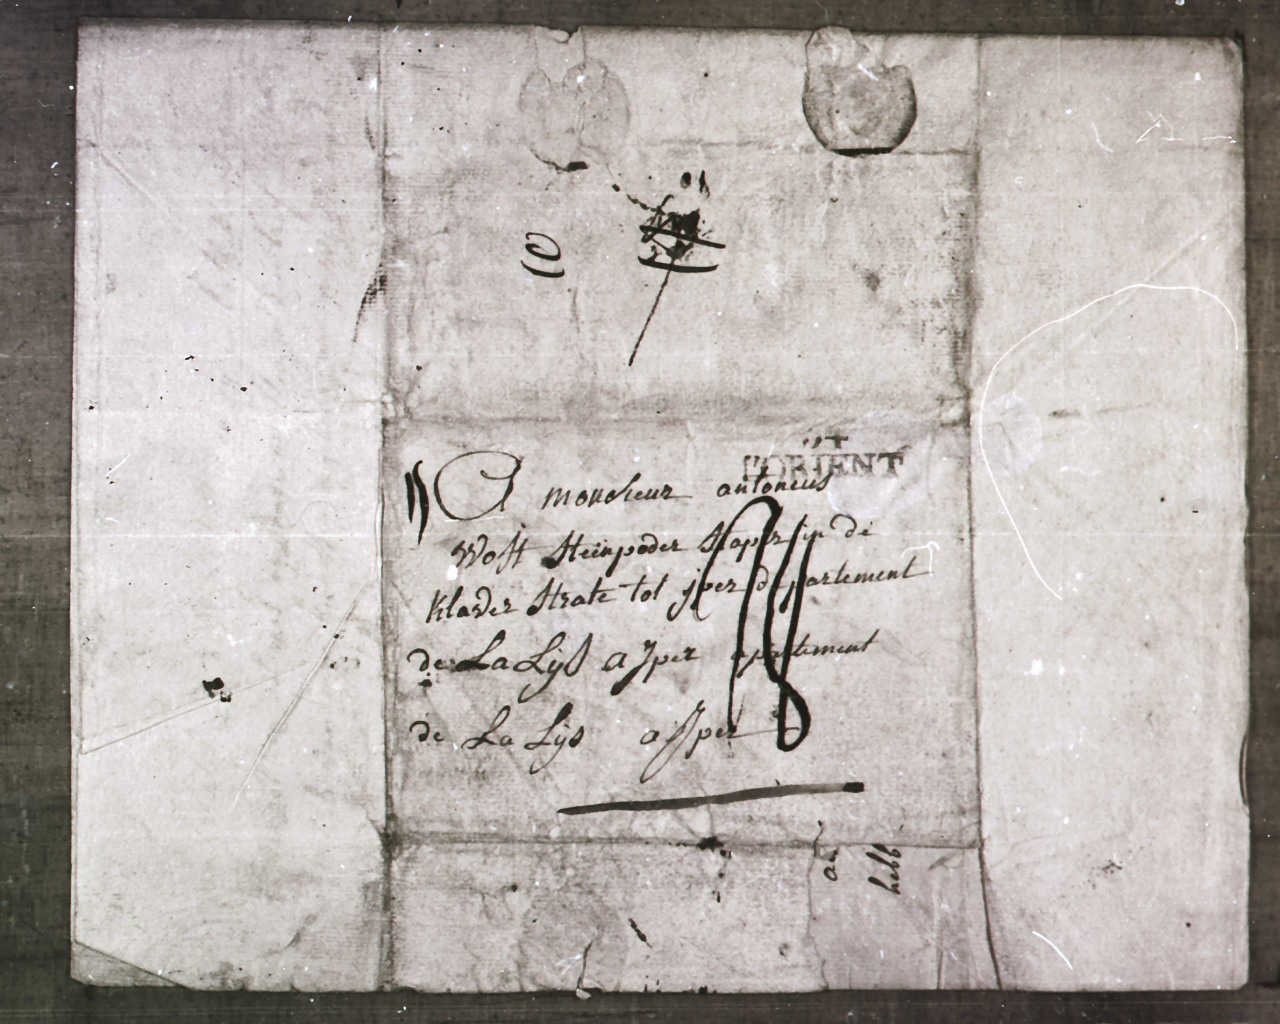 L'ORIENT
A monsieur antonius
Woft steinpoder Slaper in de
klader strate tot jper departement
de La Lys a Jper apartement
de La Lys a Jper